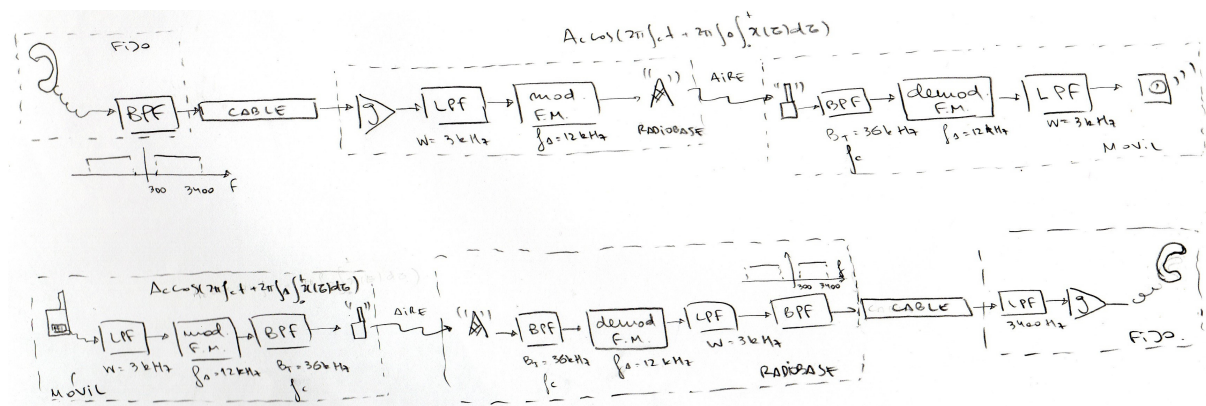 A_c cos(2π f_c t + 2π f_Δ ∫_0^t x(τ)dτ)
FIJO
BPF
CABLE
g
LPF
W = 3kHz
mod. F.M.
f_Δ = 12kHz
RADIOBASE
AIRE
BPF
B_T = 36kHz
f_c
demod F.M.
f_Δ = 12kHz
LPF
W = 3kHz
MOVIL
300 3400 f
MOVIL
A_c cos(2π f_c t + 2π f_Δ ∫^t x(τ)dτ)
LPF
W = 3kHz
mod. F.M.
f_Δ = 12kHz
BPF
B_T = 36kHz
f_c
AIRE
BPF
B_T = 36kHz
f_c
demod F.M.
f_Δ = 12kHz
LPF
W = 3kHz
300 3400 f
BPF
RADIOBASE
CABLE
LPF
3400 Hz
g
FIJO.